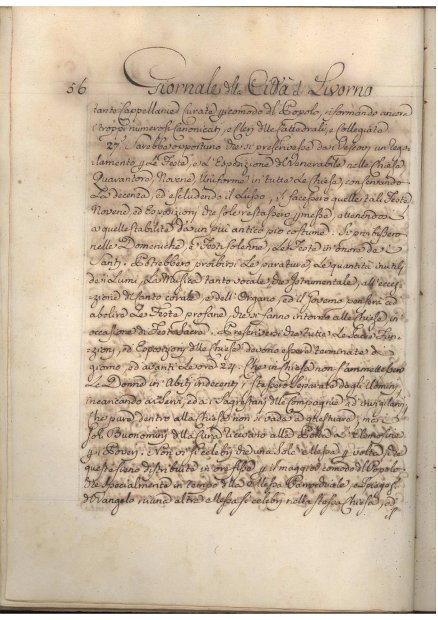 56 Giornale della Città di Livorno
tante Cappellanie Curate p comodo del Popolo, riformando ancora
i troppi numerosi Canonicati, e Cleri delle Cattedrali, e Collegiate
27. Sarebbe opportuno che si prescrivesse da Vescovi un Rego-
lamento p le Feste, e le Esposizione del Venerabile nelle Chiese
Quarantore, Novene, Uniformi in tutte le Chiese, conservando
la decenza, ed escludendo il Lusso, si facessero quelle tali Feste
Novene ed Esposizioni che sole restassero permesse, attenendosi
a quelle stabilite da un più antico pio costume. Si potrebbero
nelle Domeniche, e Feste Solenni, e le Feste in onore de
Santi. Potrebbero proibirsi le parature, le quantità inutili
dei Lumi, la Musica tanto vocale, che Istrumentale, all' ecce-
zione di Canto corale, e dell' Organo, ed il Governo penserà ad
abolire le Feste profane, che si fanno intorno alle Chiese in
occasione di Feste Sacre. Prescriversi che tutte le Sacre Fun-
zioni, ed Esposizioni delle Chiese devono essere terminate di
giorno, ed avanti le ore 24. Che in Chiesa non s'ammettessero
le Donne in Abiti indecenti, e stessero Separate dagli Uomini
incaricando i Cherici, ed i Sagrestani delle Compagnie ad invigilarvi
che pure dentro alle Chiese non si vada ad questuare, mà i
soli Buonomini della Cura ricevano alla Porta le Elemosine
p i Poveri, e non vi si celebri che una Sola Messa p volta, e che
queste siano distribuite in ore fisse p il maggior comodo del Popolo,
che specialmente in tempo della Messa Parrocchiale, e Spiegaz.
di Vangelo niuna altra Messa si celebri nella stessa Chiesa, ed